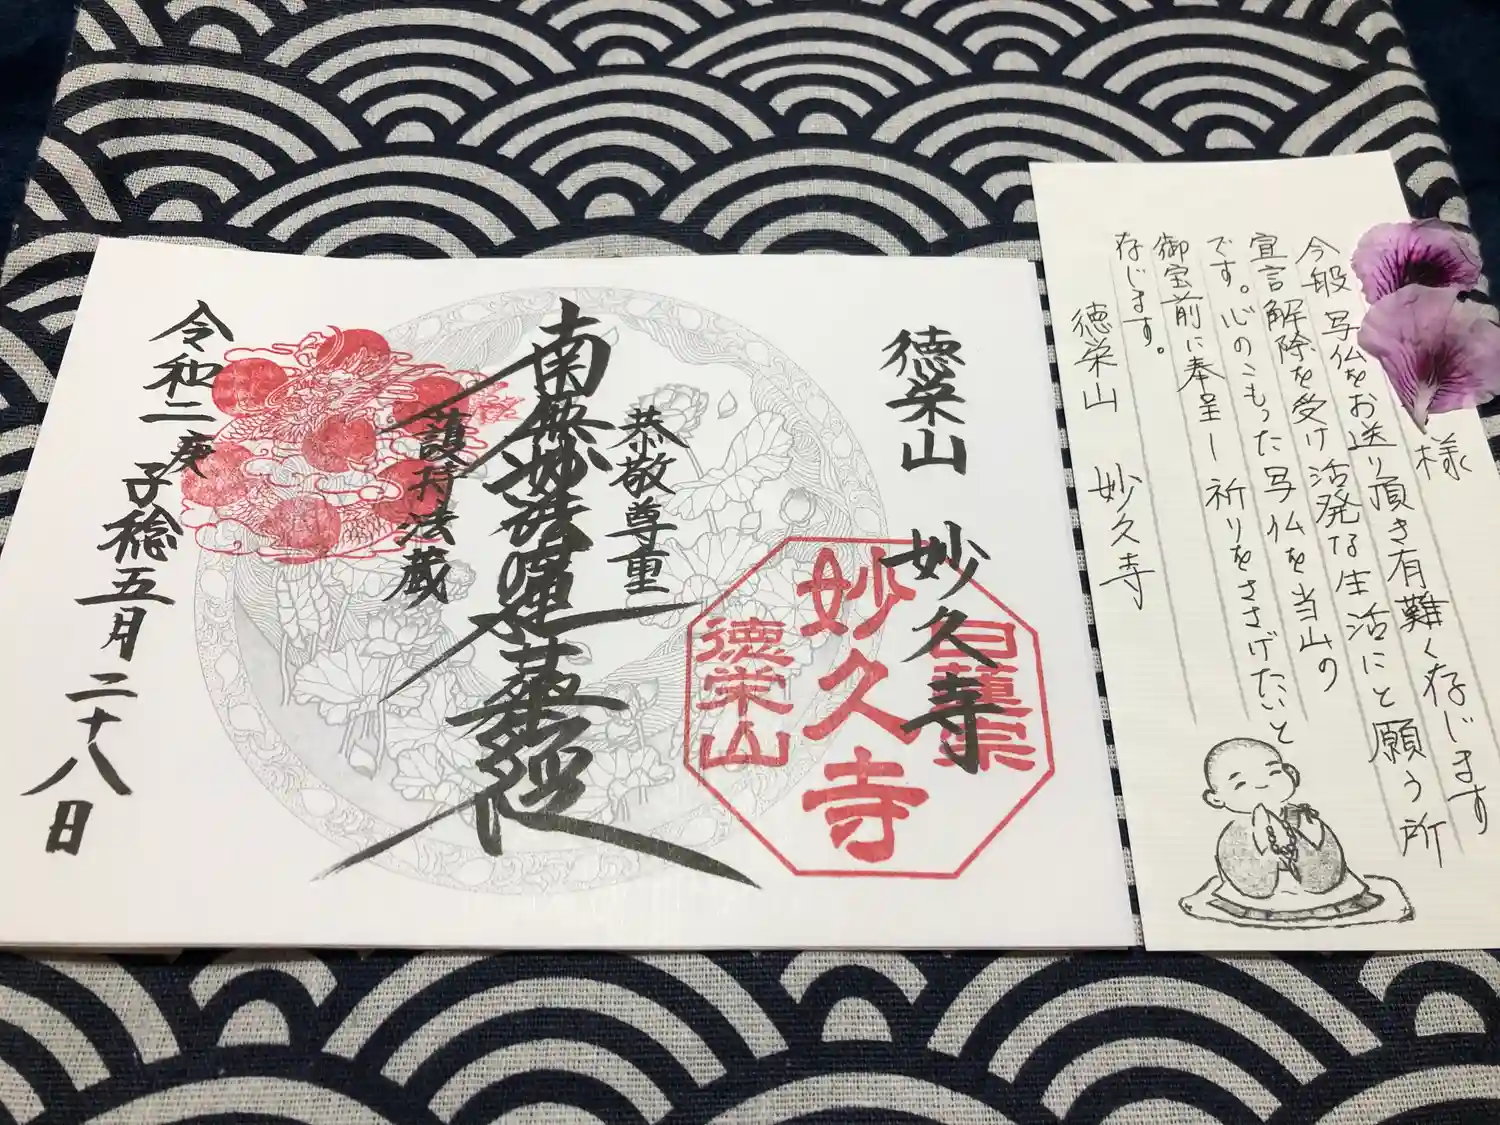 徳栄山 妙久寺
恭敬尊重
南無妙法蓮華経
護持法蔵
令和二庚子稔五月二十八日
日蓮宗
妙久寺
徳栄山
様
今般写仏をお送り頂き有難く存じます
宣言解除を受け活発な生活にと願う所
です。心のこもった写仏を当山の
御宝前に奉呈し祈りをささげたいと
存じます。
徳栄山 妙久寺